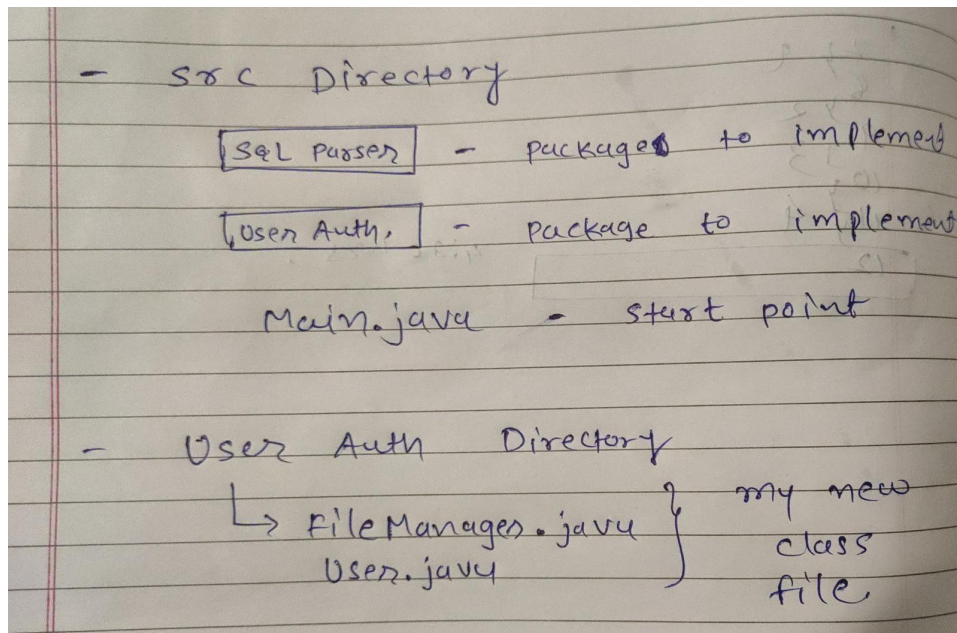 - src Directory
SQL Parser - package to implement
User Auth. - package to implement
Main.java - start point
- User Auth Directory
↳ FileManager.java } my new
User.java class
file